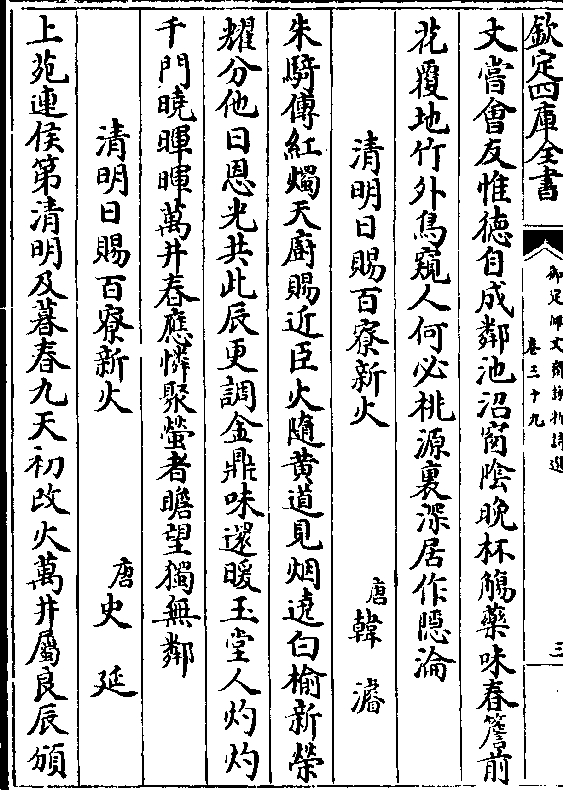 欽定四庫全書
卷三十九
三
文嘗會友惟德自成鄰池沼窗隂晚杯觴藥味春簷前
花覆地竹外鳥窺人何必桃源裏深居作隱淪
清明日賜百寮新火
唐韓濬
朱騎傳紅燭天廚賜近臣火隨黄道見烟遶白榆新榮
耀分他日恩光共此辰更調金鼎味還暖玉堂人灼灼
千門曉暉暉萬井春應憐聚螢者瞻望獨無鄰
清明日賜百寮新火
唐史延
上苑連侯第清明及暮春九天初改火萬井屬良辰頒